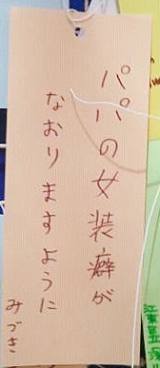 パパの女装癖が
なおりますように
みづき
江東区立